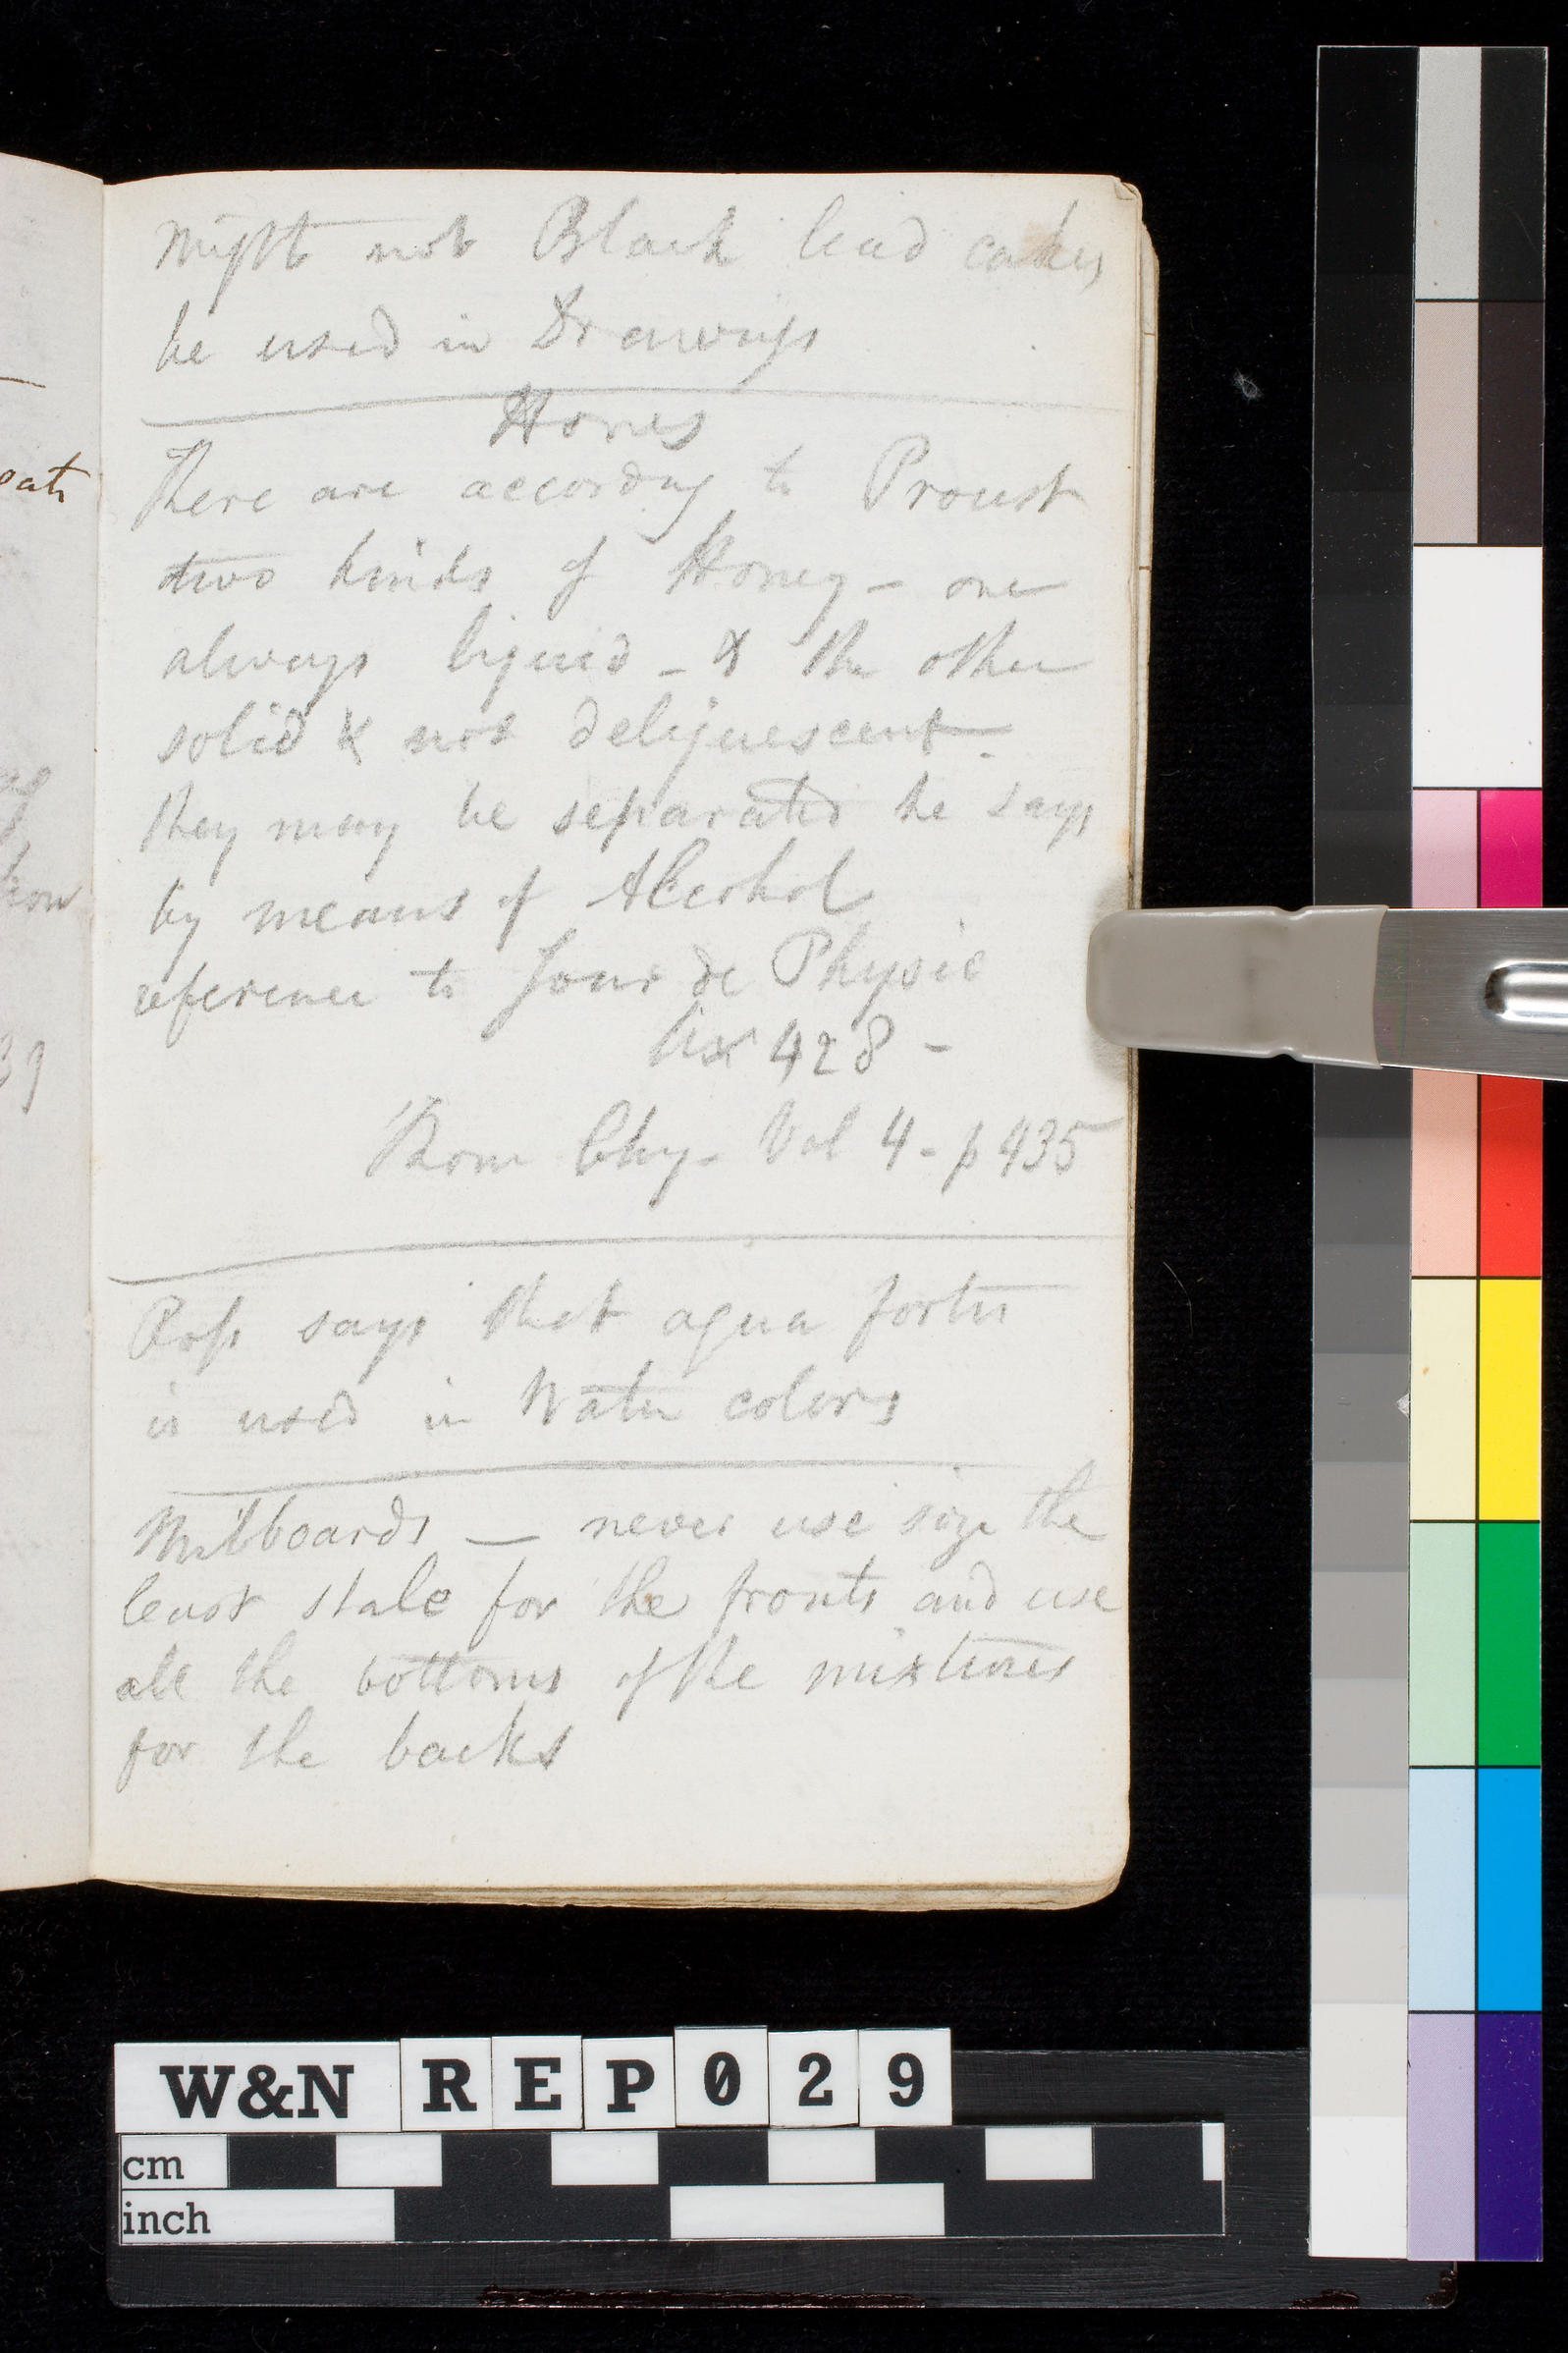 Might not Black lead cakes
be used in Drawings
Honey
There are according to Proust
two kinds of Honey – one
always liquid – & the other
solid & not deliquescent –
they may be separated he says
by means of Alcohol
reference to Jour de Physic
lix 428 –
Thom Chy – Vol 4 – p 435
Ross says that aqua fortis
is used in Water colors
Millboards — never use size the
least stale for the fronts and use
all the bottoms of the mixtures
for the backs
W&N REP029
cm
inch